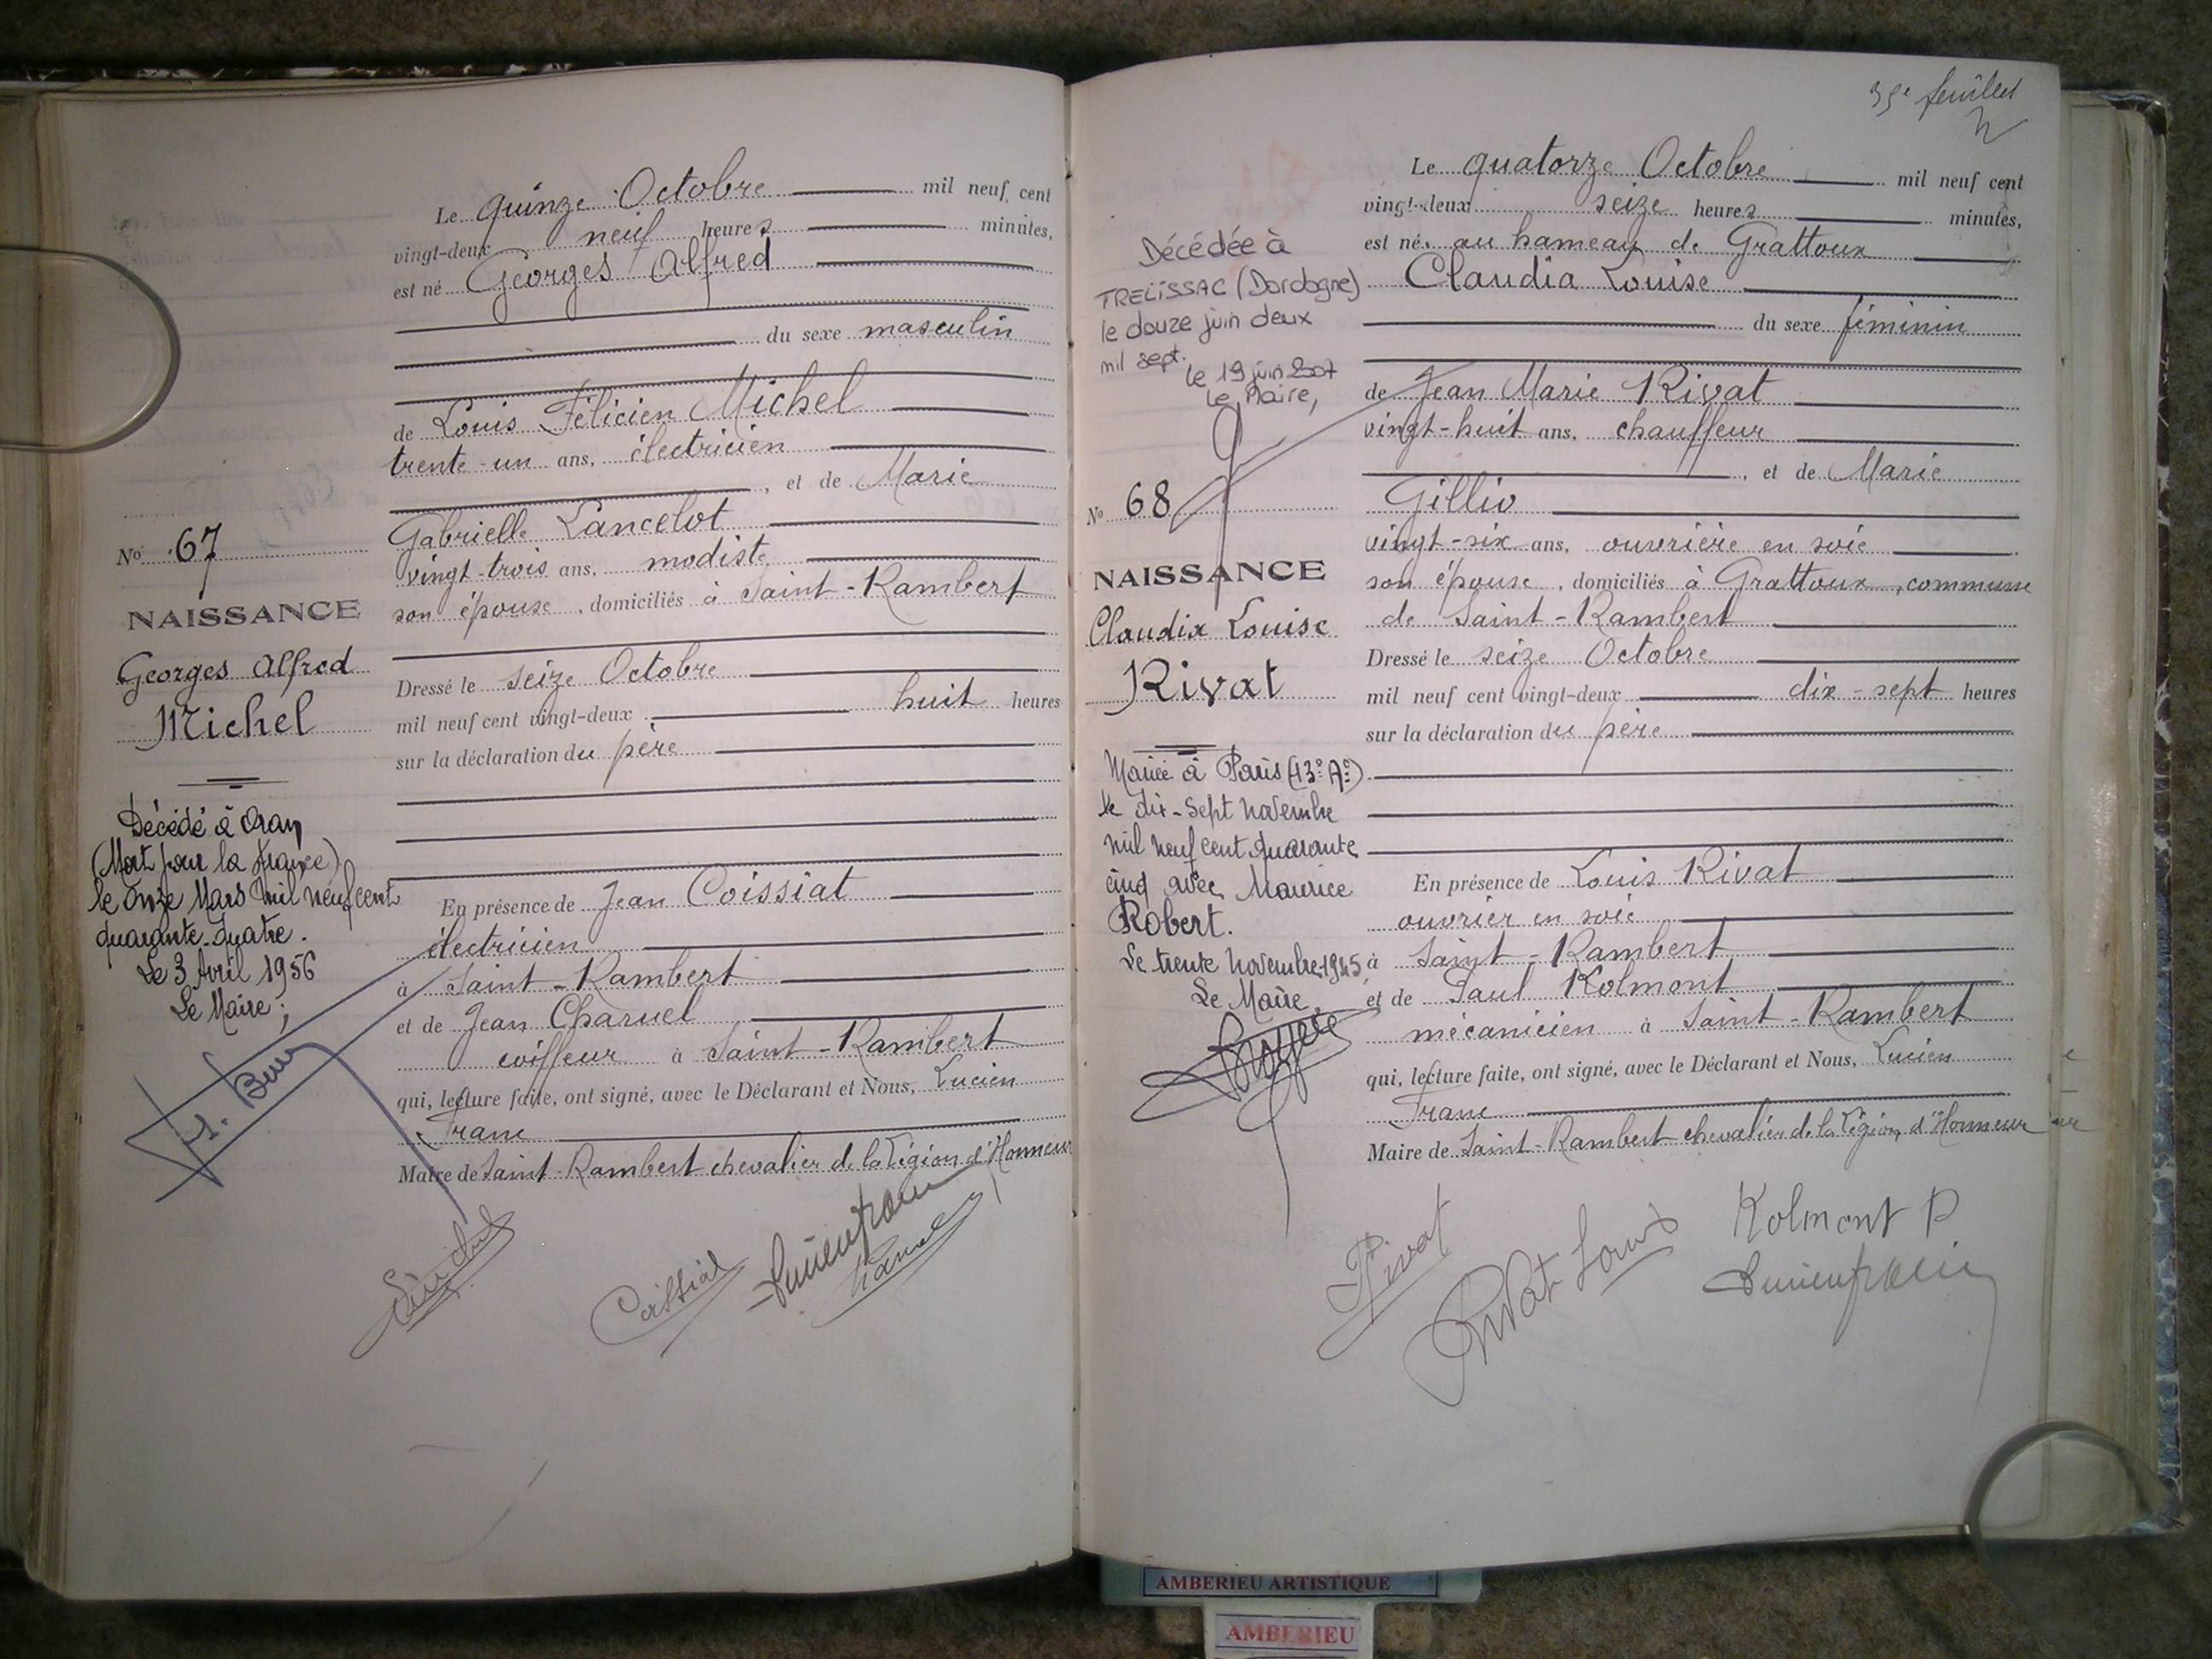 Le quinze Octobre mil neuf cent
vingt-deux neuf heures minutes,
est né Georges Alfred
du sexe masculin
de Louis Félicien Michel
trente-un ans, électricien
, et de Marie
Gabrielle Lancelot
vingt-trois ans, modiste
son épouse, domiciliés à Saint-Rambert
Dressé le seize Octobre
mil neuf cent vingt-deux huit heures
sur la déclaration du père
En présence de Jean Coissiat
électricien
à Saint-Rambert
et de Jean Charvel
coiffeur à Saint-Rambert
qui, lecture faite, ont signé, avec le Déclarant et Nous, Lucien
Franc
Maire de Saint-Rambert chevalier de la Légion d'Honneur
No 67
NAISSANCE
Georges Alfred
Michel
Décédé à Oran
(Mort pour la France)
le onze Mars mil neuf cent
quarante-quatre.
Le 3 Avril 1956
Le Maire;
Coissiat
35e feuillet
Le quatorze Octobre mil neuf cent
vingt-deux seize heures minutes,
est née au hameau de Grattoux
Claudia Louise
du sexe féminin
de Jean Marie Rivat
vingt-huit ans, chauffeur
, et de Marie
Gillio
vingt-six ans, ouvrière en soie
son épouse, domiciliés à Grattoux, commune
de Saint-Rambert
Dressé le seize Octobre
mil neuf cent vingt-deux dix-sept heures
sur la déclaration du père
En présence de Louis Rivat
ouvrier en soie
à Saint-Rambert
et de Paul Kolmont
mécanicien à Saint-Rambert
qui, lecture faite, ont signé, avec le Déclarant et Nous, Lucien
Franc
Maire de Saint-Rambert chevalier de la Légion d'Honneur
Décédée à
TRELISSAC (Dordogne)
le douze juin deux
mil sept.
le 19 juin 2007
Le Maire,
No 68
NAISSANCE
Claudia Louise
Rivat
Mariée à Paris (13e At)
le dix-sept novembre
mil neuf cent quarante
cinq avec Maurice
Robert.
Le trente Novembre 1945
Le Maire
Rivat
Rivat Louis
Kolmont P
Lucien Franc
AMBERIEU ARTISTIQUE
AMBERIEU